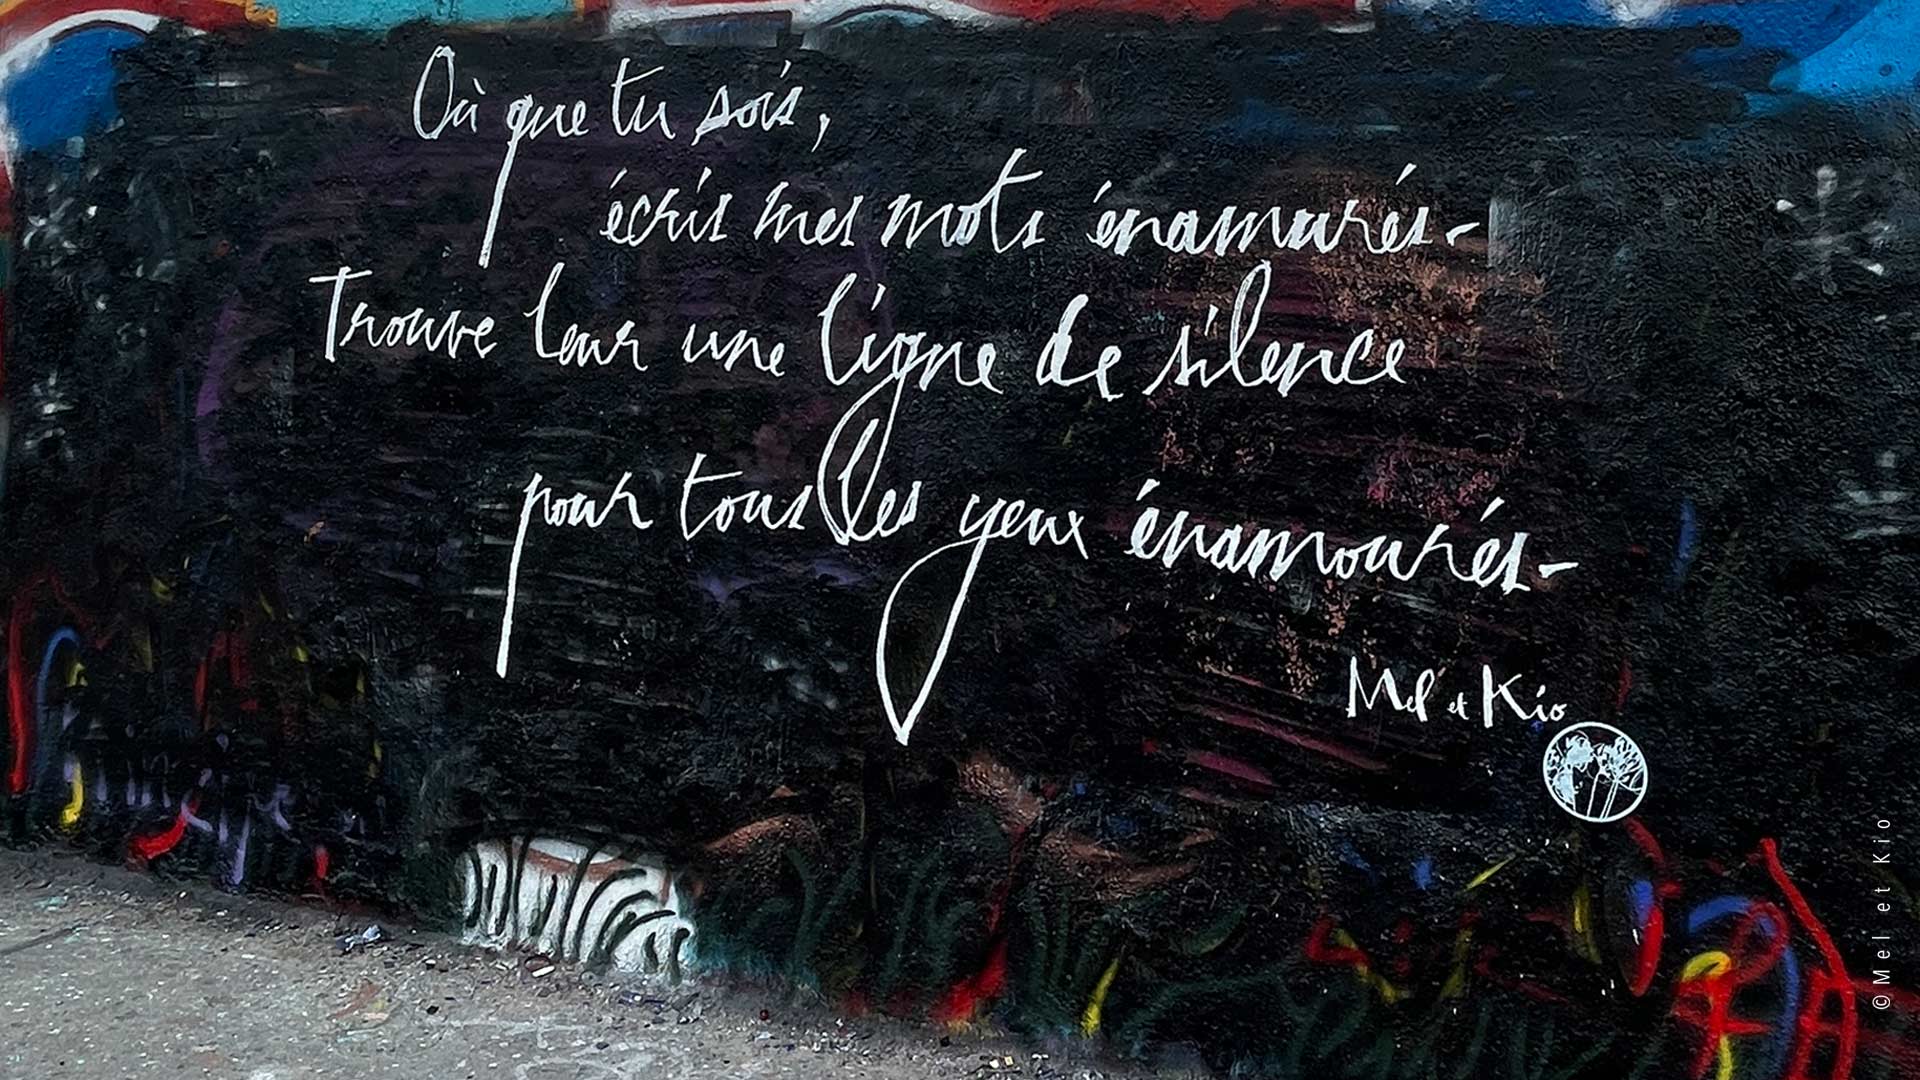 Où que tu sois,
écris mes mots énamurés-
Trouve leur une ligne de silence
pour tous les yeux énamourés-
Mel et Kio
©Mel et Kio